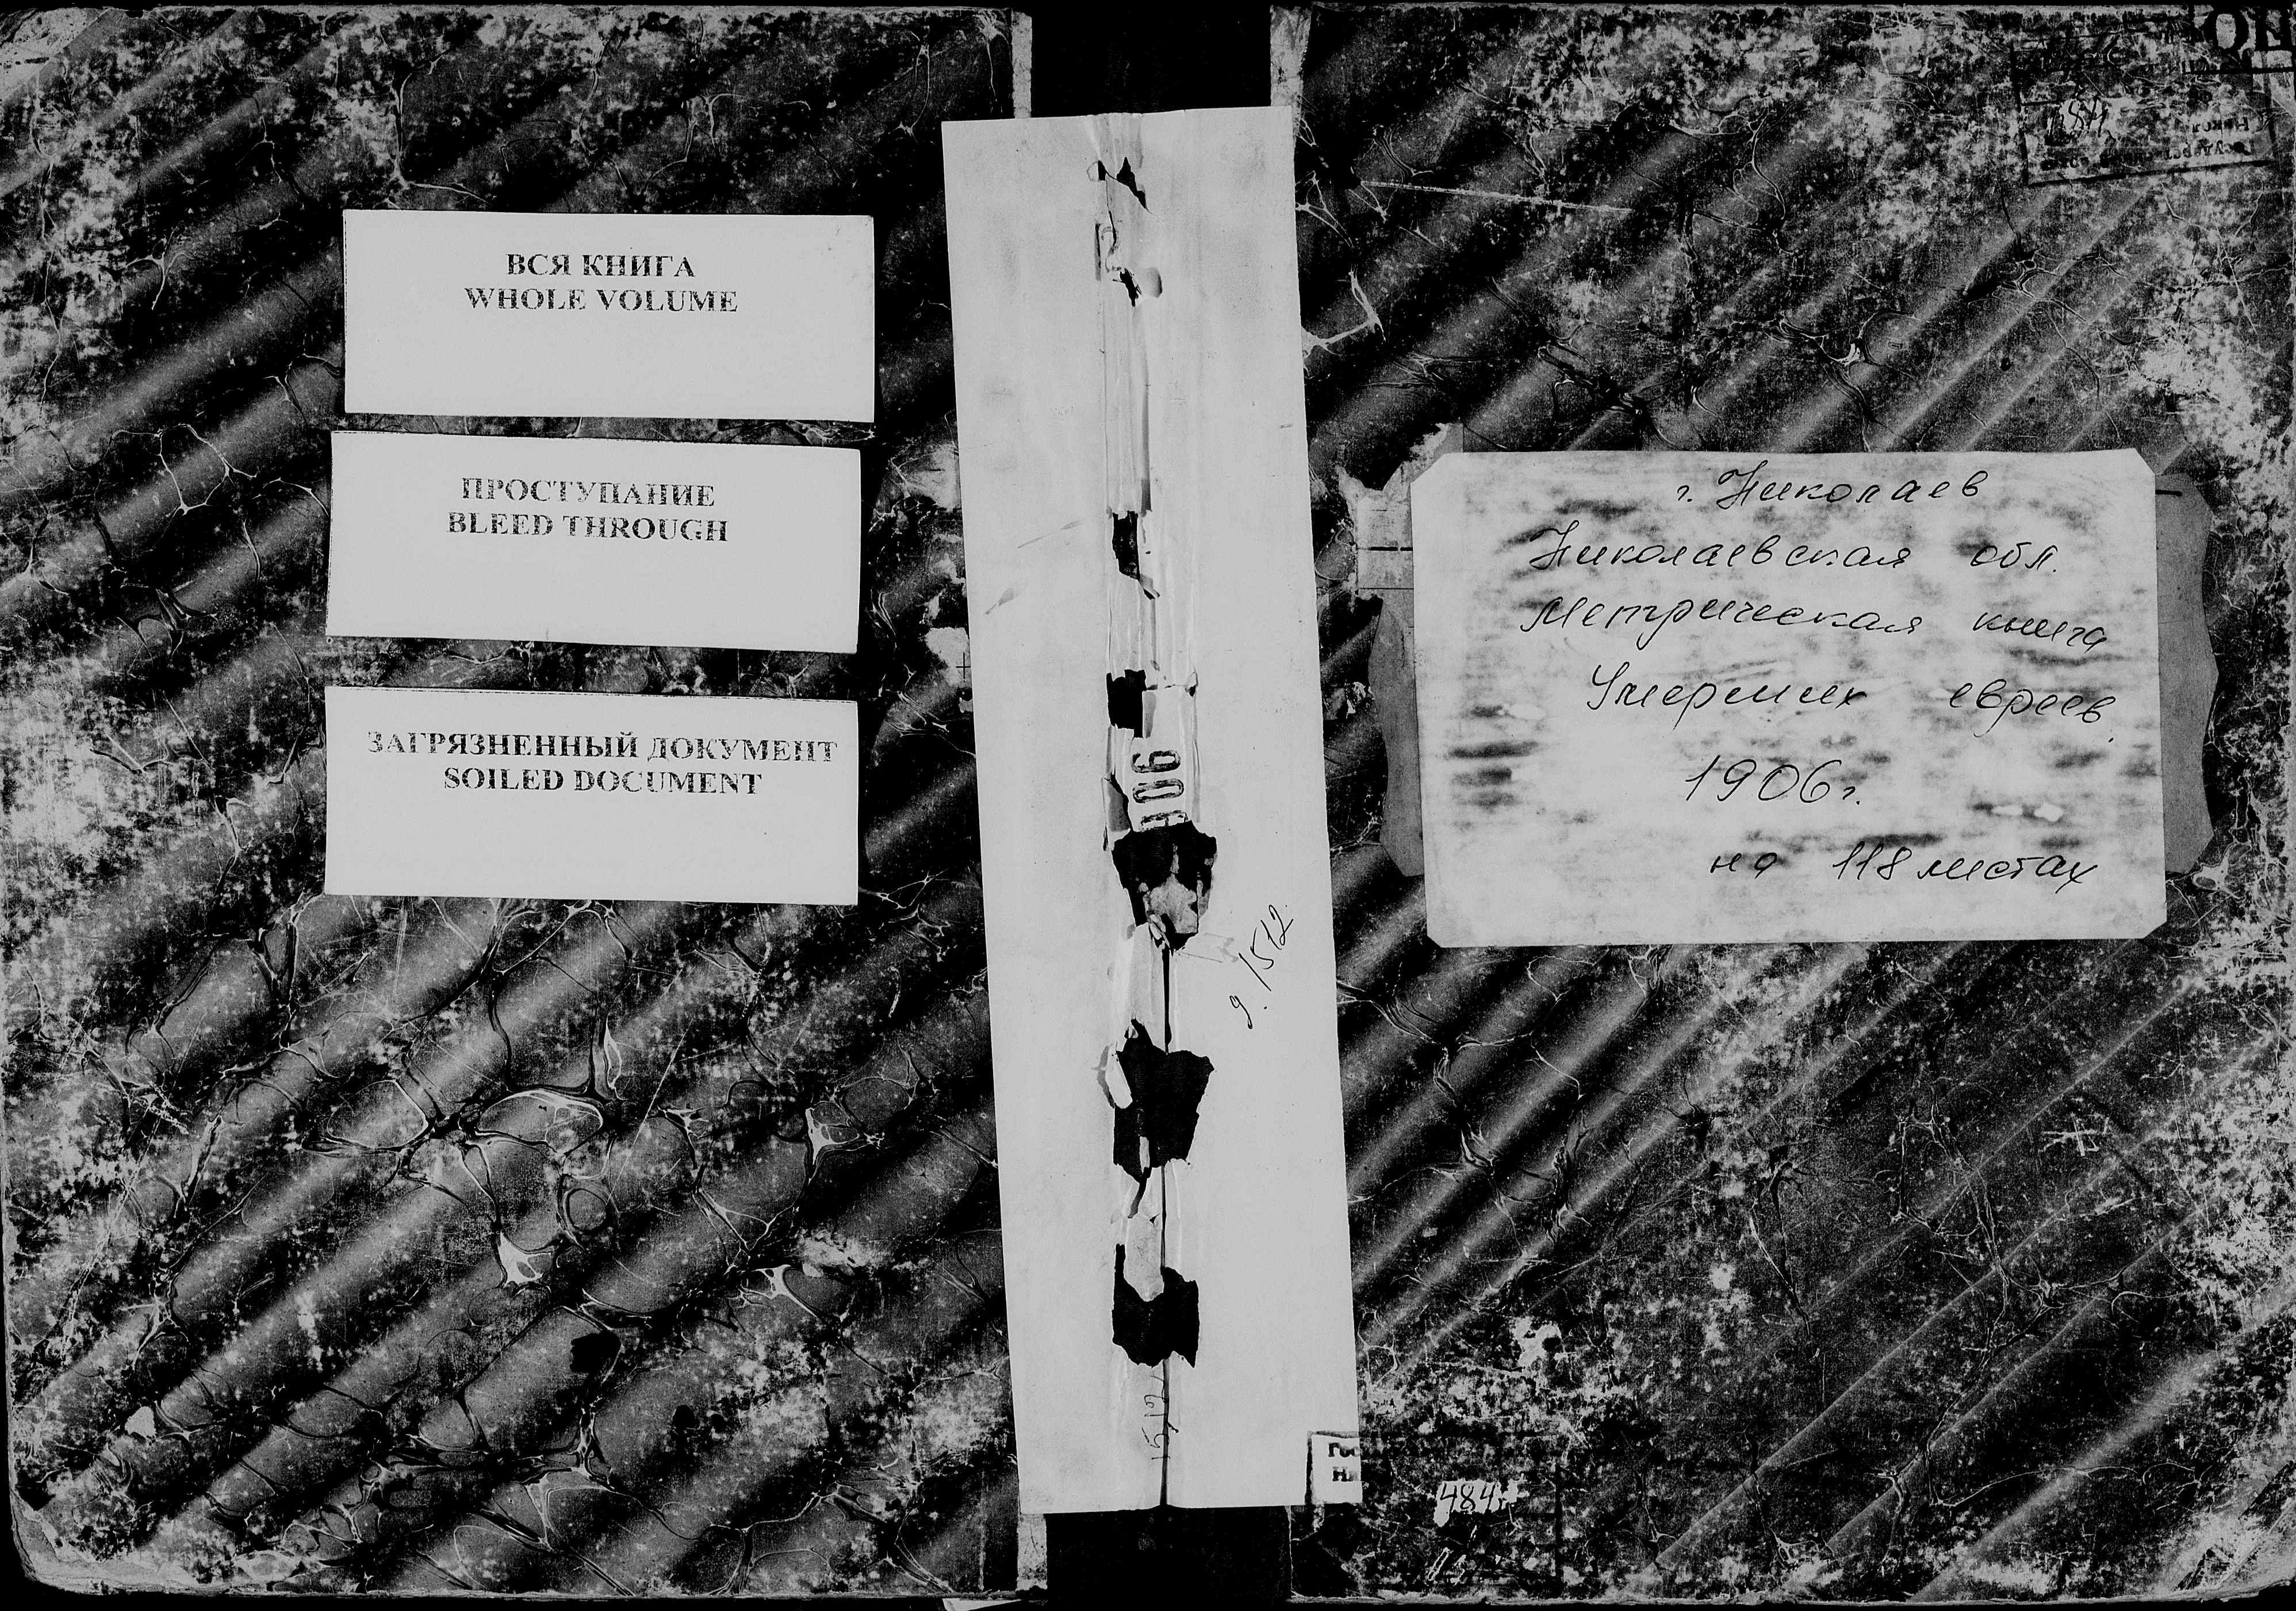 ВСЯ КНИГА
WHOLE VOLUME
ПРОСТУПАНИЕ
BLEED THROUGH
ЗАГРЯЗНЕННЫЙ ДОКУМЕНТ
SOILED DOCUMENT
906
д. 1512
1512
г. Николаев
Николаевская обл.
Метрическая книга
Умерших евреев.
1906 г.
на 118 листах
Гос
Ни
484